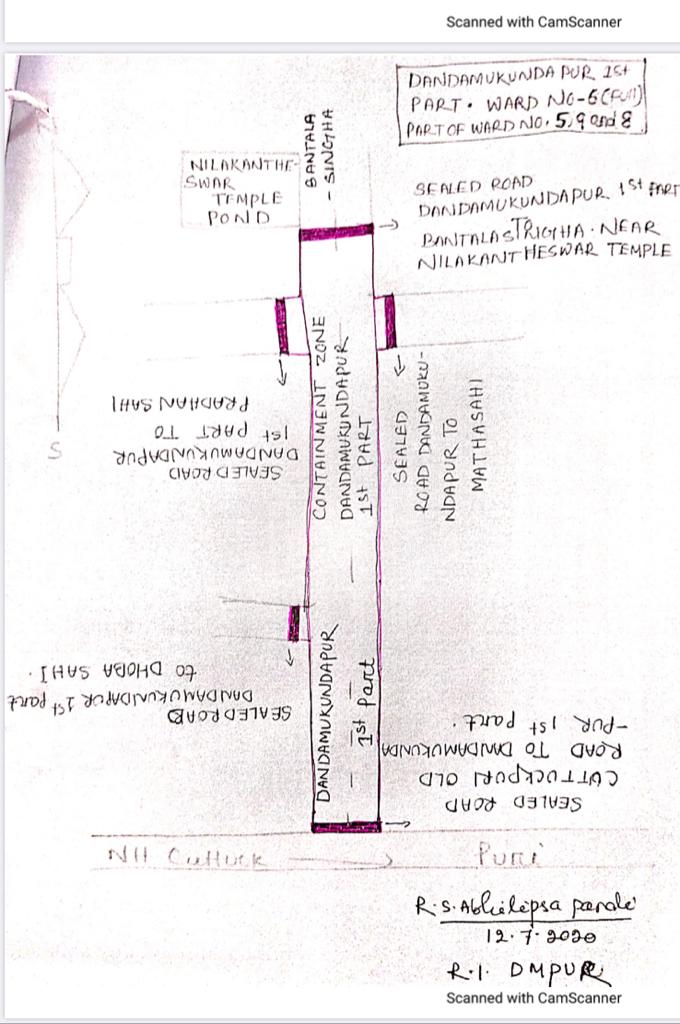 Scanned with CamScanner
DANDAMUKUNDA PUR 1st
PART. WARD NO-6(Full)
PART OF WARD NO. 5,9 and 8
BANTALA
- SINGHA
NILAKANTHE-
SWAR
TEMPLE
POND
SEALED ROAD
DANDAMUKUNDAPUR 1st PART
NEAR
NILAKANTHESWAR TEMPLE
SEALED ROAD
DANDAMUKUNDAPUR
1st PART TO
PRADHAN SAHI
CONTAINMENT ZONE
DANDAMUKUNDAPUR
1st PART
SEALED
ROAD DANDAMUKU-
NDAPUR TO
MATHASAHI
S
SEALED ROAD
DANDAMUKUNDAPUR 1st part
to DHOBA SAHI.
DANDAMUKUNDAPUR
1st Part
SEALED ROAD
CUTTUCKPURI OLD
ROAD TO DANDAMUKUNDA
-PUR 1st part.
NH Cuttuck
Puri
R.S. Abhilipsa
12.7.2020
R.I. DMPUR
Scanned with CamScanner